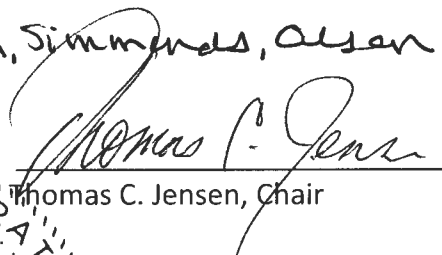 , Simmonds, Olsen
Thomas C. Jensen
Thomas C. Jensen, Chair